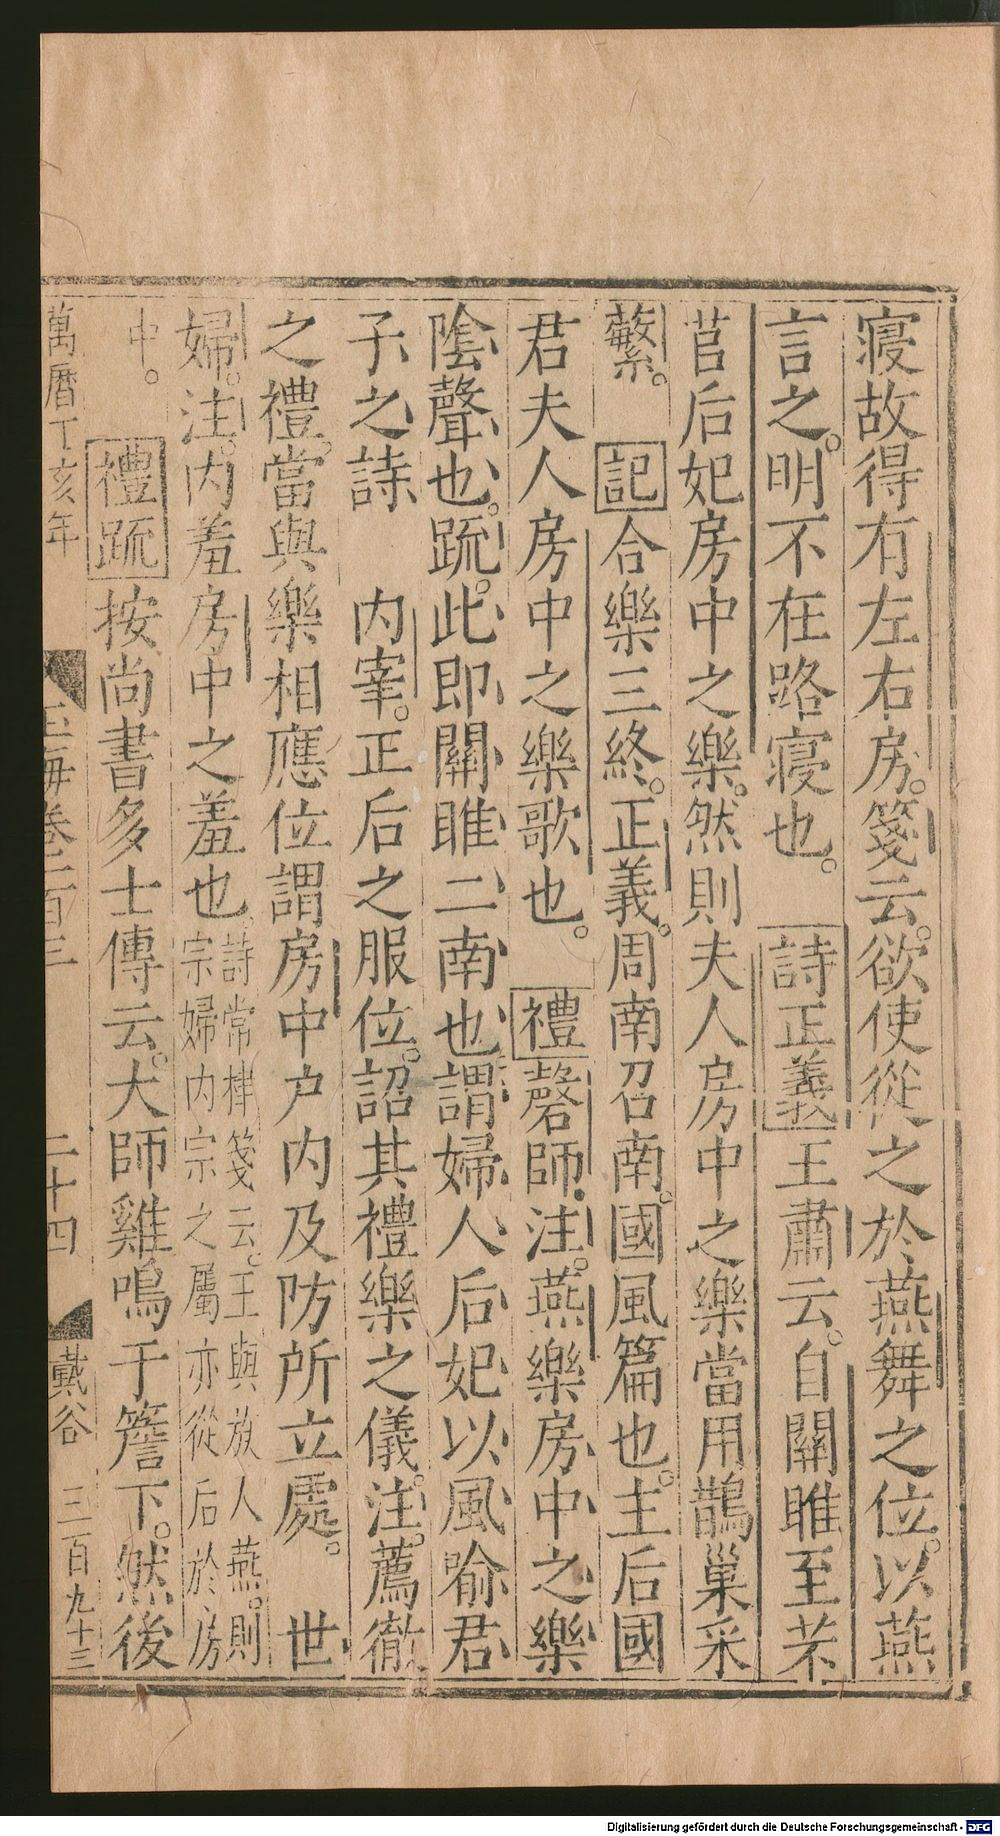 寢故得有左右房。箋云。欲使從之於燕舞之位。以燕
言之。明不在路寢也。 詩正義王肅云。自關雎至芣
苢后妃房中之樂。然則夫人房中之樂當用鵲巢采
蘩。 記合樂三終。正義。周南召南。國風篇也。主后國
君夫人房中之樂歌也。 禮磬師注。燕樂房中之樂
陰聲也。䟽。此即關雎二南也謂婦人后妃以風喻君
子之詩 内宰。正后之服位。詔其禮樂之儀。注。薦徹
之禮。當與樂相應位謂房中户内及防所立處。 世
婦。注。内羞房中之羞也詩常棣箋云。王與族人燕。則
宗婦内宗之屬亦從后於房
中。 禮䟽按尚書多士傳云。大師雞鳴于簷下。然後
萬曆丁亥年 玉海卷一百三 二十四 戴谷 三百九十三
Digitalisierung gefördert durch die Deutsche Forschungsgemeinschaft - DFG